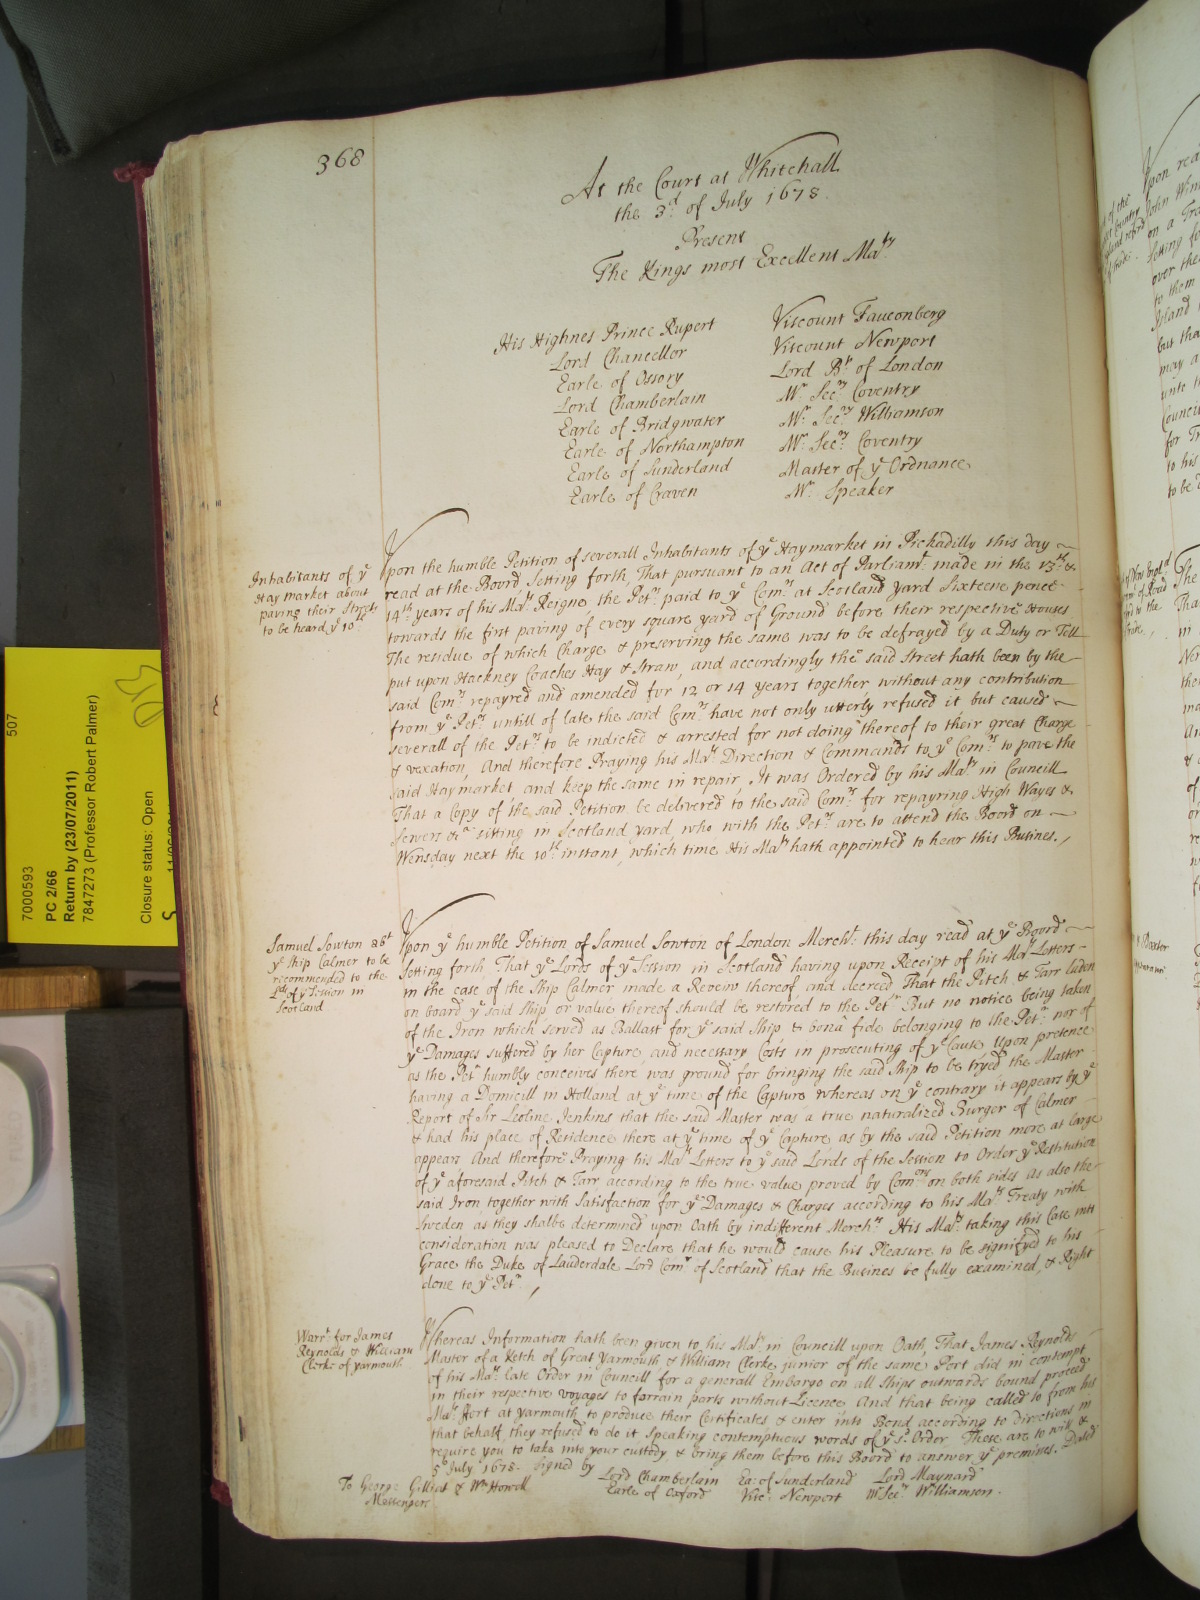 368
At the Court at Whitehall
the 3d of July 1678.
Present
The Kings most Excellent Maty
His Highnes Prince Rupert
Lord Chancellor
Earle of Ossory
Lord Chamberlain
Earle of Bridgwater
Earle of Northampton
Earle of Sunderland
Earle of Craven
Viscount Fauconberg
Viscount Newport
Lord Bp of London
Mr Secry Coventry
Mr Secry Williamson
Mr Secry Coventry
Master of ye Ordnance
Mr Speaker
Inhabitants of ye
Hay market about
paving their Street
to be heard ye 10th
Upon the humble Petition of severall Inhabitants of ye Haymarket in Pickadilly this day
read at the Board Setting forth, That pursuant to an Act of Parliamt made in the 13th &
14th years of his Mats Reigne the Petrs paid to ye Comrs at Scotland yard Sixteene pence
towards the first paving of every square yard of Ground before their respective Houses
The residue of which Charge & preserving the same was to be defrayed by a Duty or Toll
put upon Hackney Coaches Hay & Straw, and accordingly the said Street hath been by the
said Comrs repayred and amended for 12 or 14 years together without any contribution
from ye Petrs untill of late the said Comrs have not only utterly refused it but caused
severall of the Petrs to be indicted & arrested for not doing thereof to their great Charge
& vexation, And therefore Praying his Mats Direction & Commands to ye Comrs to pave the
said Haymarket and keep the same in repair, It was Ordered by his Maty in Councill
That a Copy of the said Petition be delivered to the said Comrs for repayring High Wayes &
Sewers &ca sitting in Scotland yard, who with the Petrs are to attend the Board on
Wensday next the 10th instant, which time His Maty hath appointed to hear this Busines.
Samuel Sowton abt
ye Ship Calmer to be
recommended to the
Lds of ye Session in
Scotland
Upon ye humble Petition of Samuel Sowton of London Mercht this day read at ye Board
Setting forth, That ye Lords of ye Session in Scotland having upon Receipt of his Mats Letters
in the case of the Ship Calmer made a Reveiw thereof and decreed That the Pitch & Tarr laden
on board ye said Ship or value thereof should be restored to the Petr But no notice being taken
of the Iron which served as Ballast for ye said Ship & bona fide belonging to the Petr nor of
ye Damages suffered by her Capture and necessary Costs in prosecuting of ye Cause Upon pretence
as the Petr humbly conceives there was ground for bringing the said Ship to be tryed the Master
having a Domicill in Holland at ye time of the Capture whereas on ye contrary it appears by ye
Report of Sr Leoline Jenkins that the said Master was a true naturalized Burger of Calmer
& had his place of Residence there at ye time of ye Capture as by the said Petition more at large
appears And therefore Praying his Mats Letters to ye said Lords of the Session to Order ye Restitution
of ye aforesaid Pitch & Tarr according to the true value proved by Comons on both sides As also the
said Iron together with Satisfaction for ye Damages & Charges according to his Mats Treaty with
Sweden as they shalbe determined upon Oath by indifferent Merchts His Maty taking this Case into
consideration was pleased to Declare that he would cause his Pleasure to be signifyed to his
Grace the Duke of Lauderdale Lord Comr of Scotland that the Busines be fully examined, & Right
done to ye Petr.
Warrt for James
Reynolds & William
Clerke of yarmouth
Whereas Information hath been given to his Maty in Councill upon Oath, That James Reynolds
Master of a Ketch of Great Yarmouth & William Clerke junior of the same Port did in contempt
of his Mats late Order in Councill for a generall Embargo on all Ships outwards bound proceed
in their respective voyages to forrain parts without Licence And that being called to from his
Mats Fort at yarmouth to produce their Certificates & enter into Bond according to Directions in
that behalf they refused to do it Speaking contemptuous words of ye sd Order. These are to will &
require you to take into your custody & bring them before this Board to answer ye premises. Dated
5th July 1678. Signed by
Lord Chamberlain Ea: of Sunderland Lord Maynard
Earle of Oxford Visc: Newport Mr Secry Williamson.
To George Gilliot & Wm Howell
Messengers
7000593
507
PC 2/66
Return by (23/07/2011)
7847273 (Professor Robert Palmer)
Closure status: Open